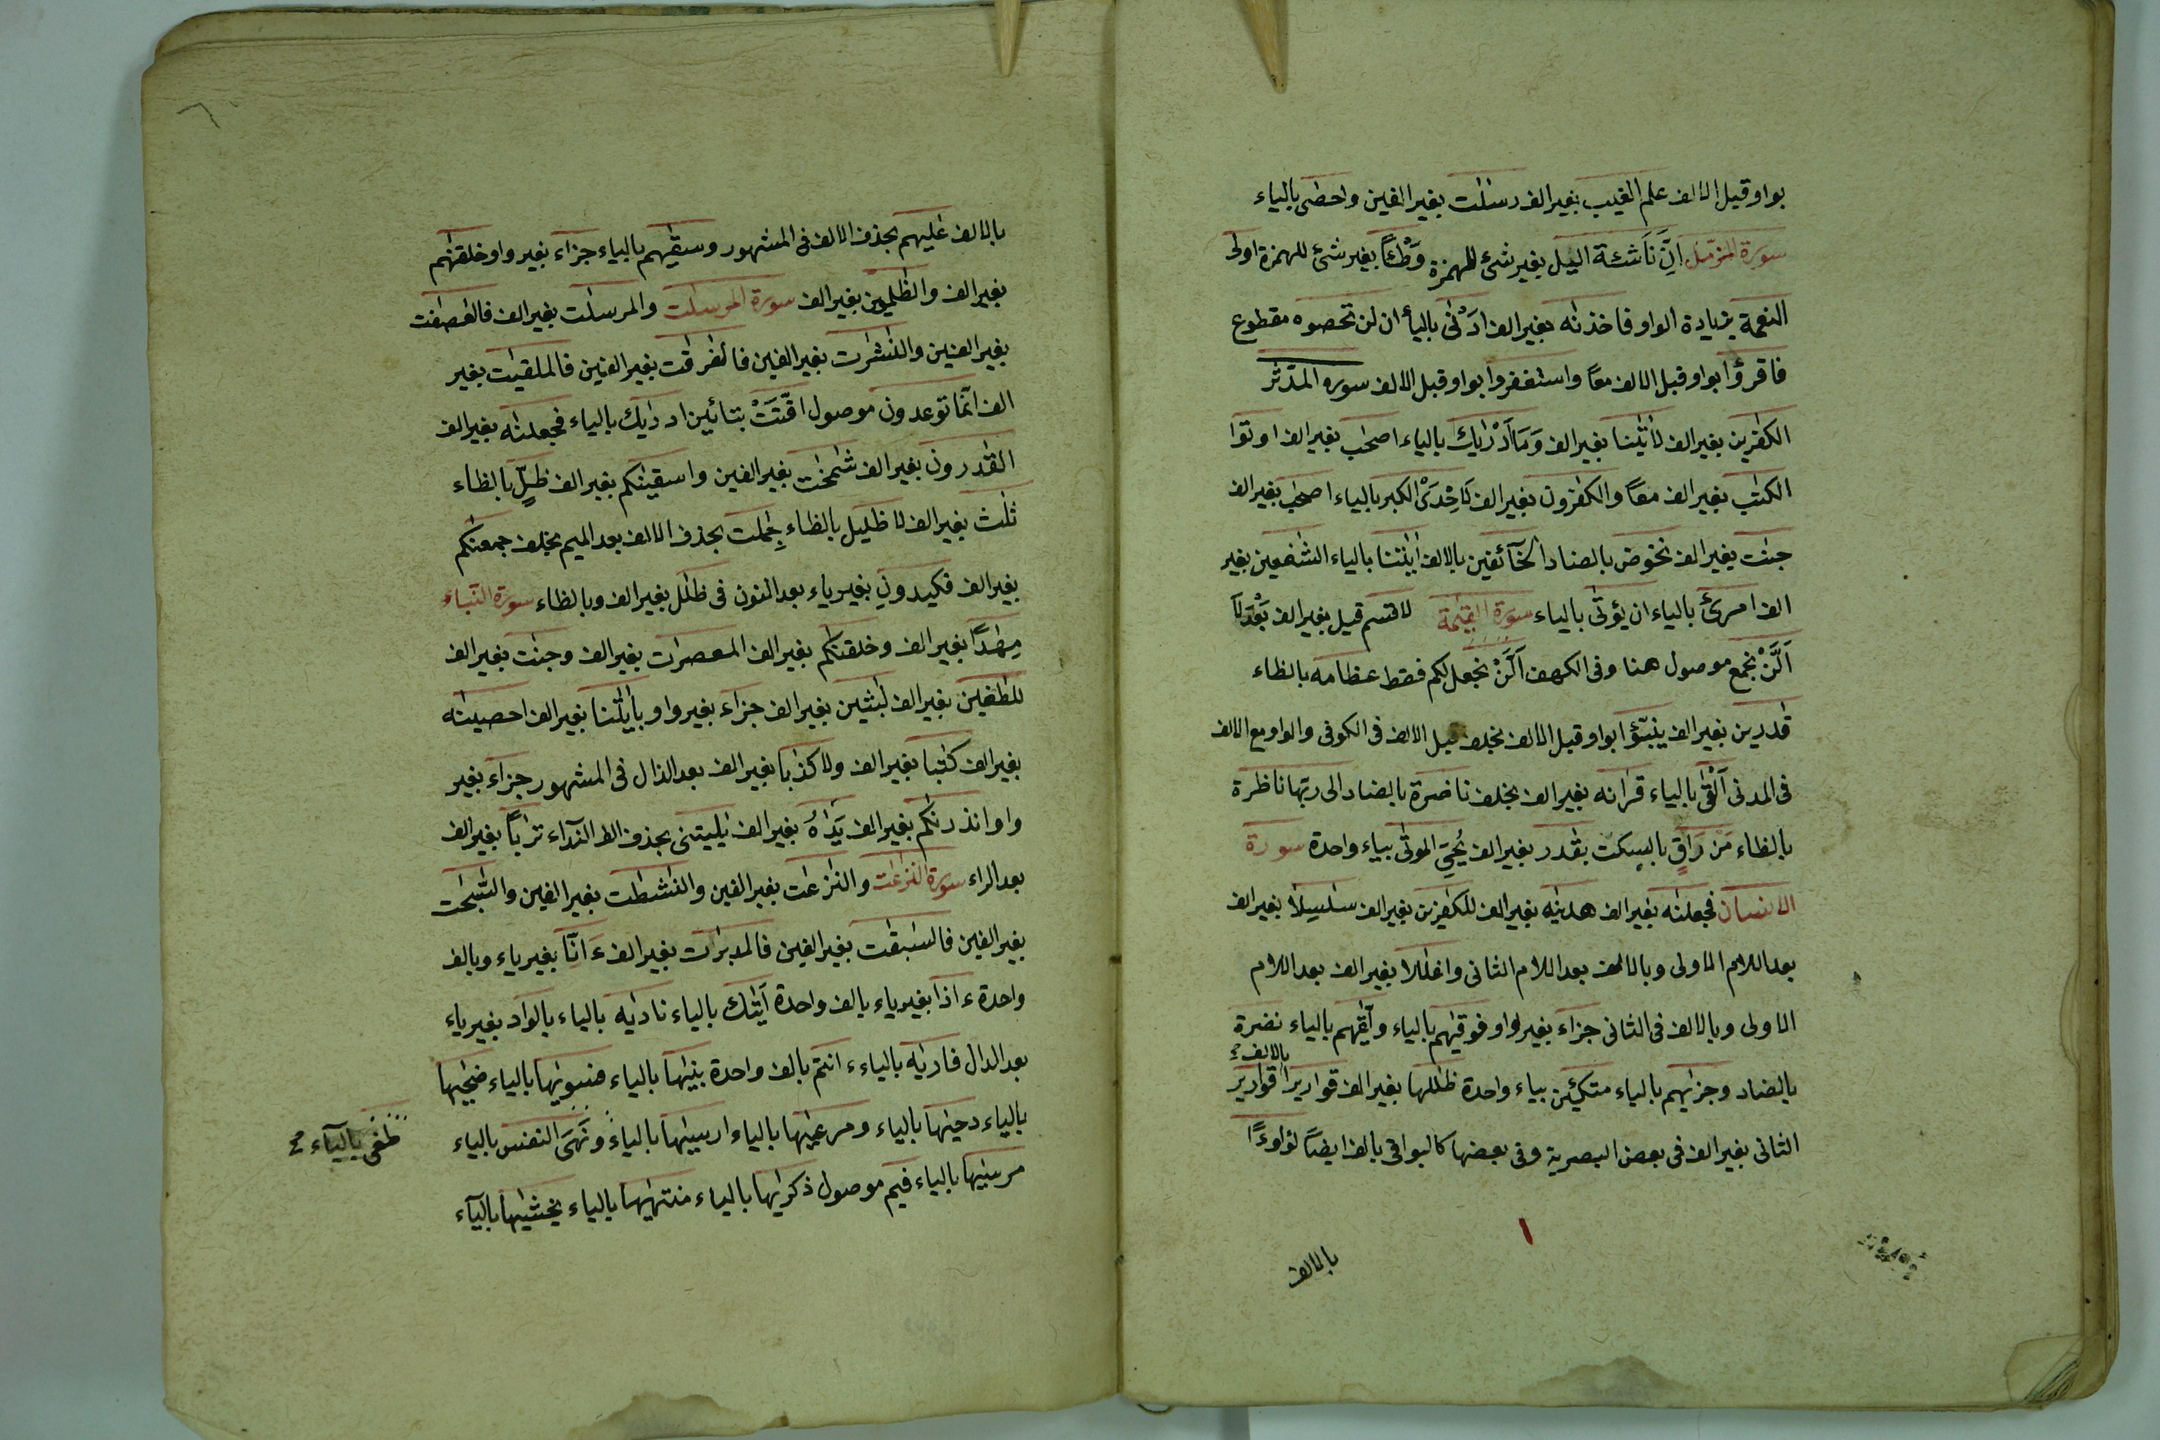 بواو قبل الالف علم الغيب بغير الف رسلت بغير الفين واحصى بالياء
سورة المزمل انّ ناشئة اليل بغير شئ للهمزة وَطْـًٔا بغير شئ للهمزة اولى
النعمة بزيادة الواو فاخذنه بغير الف ادْنى بالياء ان لن تحصوه مقطوع
فاقرؤا بواو قبل الالف معا واستغفروا بواو قبل الالف سوره المدّثر
الكفرين بغير الف لأيتنا بغير الف وَمَا اَدْرٰيك بالياء اصحب بغير الف اوتوا
الكتب بغير الف معاً والكفرون بغير الف لَاِحْدَى الكبر بالياء اصحب بغير الف
جنت بغير الف نخوض بالضاد الخآئضين بالالف اتٰينا بالياء الشفعين بغير
الف امرئ بالياء ان يؤتى بالياء سورة القيمة لا قسم قيل بغير الف بَعْدَ لَا
اَلَّنْ نجمع موصول هنا وفى الكهف اَلَّنْ نجعل لكم فقط عظامه بالظاء
قدرين بغير الف ينبّؤا بواو قبل الالف بخلف قبل الالف فى الكوفى والواو مع الالف
فى المدنى اَلْقٰى بالياء قرانه بغير الف بخلف ناضرة بالضاد الى ربّها ناظرة
بالظاء مَنْ رَاقٍ بالسكت بقدر بغير الف يُحْيِىَ الموتى بياء واحدة سورة
الانسان فجعلنه بغير الف هدينه بغير الف للكفرين بغير الف سلسلا بغير الف
بعد اللام الاولى وبالالف بعد اللام الثانى واغللا بغير الف بعد اللام
الاولى وبالالف فى الثانى جزاء بغير واو فوقيهم بالياء ولقيهم بالياء نضرة
بالضاد وجزيهم بالياء متكئين بياء واحدة ظللها بغير الف قواريرا بالالف قوارير
الثانى بغير الف فى بعض البصرية وفى بعضها كالبواقى بالف ايضاً لؤلوءًا
بالالف
بالالف عليهم بحذف الالف فى المشهور وسقيهم بالياء جزاء بغير واو خلقنهم
بغير الف والظلمين بغير الف سورة المرسلت والمرسلت بغير الف فالعصفت
بغير الفين والنشرت بغير الفين فالفرقت بغير الفين فالملقيت بغير
الف انّما توعدون موصول اقّتَتْ بتائين ادريك بالياء فجعلنه بغير الف
القدرون بغير الف شمخت بغير الفين واسقينكم بغير الف ظلٍّ بالظاء
ثلث بغير الف لا ظليل بالظاء جِملت بحذف الالف بعد الميم بخلف جمعنكم
بغير الف فكيدونِ بغير ياء بعد النون فى ظلل بغير الف وبالظاء سورة النباء
مِهدًا بغير الف وخلقنكم بغير الف المعصرات بغير الف وجنت بغير الف
للطغين بغير الف لبثين بغير الف جزاءَ بغير واو بايتنا بغير الف احصينه
بغير الف كتبا بغير الف ولا كذبا بغير الف بعد الذال فى المشهور جزاء بغير
واو انذرنكم بغير الف يَدٰاهُ بغير الف يليتنى بحذف الف النّداء ترباً بغير الف
بعد الراء سورة النزعت والنزعت بغير الفين والنشطت بغير الفين والسّبحت
بغير الفين فالسبقت بغير الفين فالمدبرات بغير الف ءَانّا بغير ياء وبالف
واحدة ءاذا بغير ياء بالف واحدة اَتيك بالياء ناديه بالياء بالواد بغير ياء
بعد الدال فاريه بالياء ءانتم بالف واحدة بنيها بالياء فسويها بالياء ضحيها
بالياء دحيها بالياء ومرعيها بالياء ارسيها بالياء ونَهَى النفس بالياء
مرسيها بالياء فيم موصول ذكريها بالياء منتهيها بالياء يخشيها باليآء
طغى باليآء